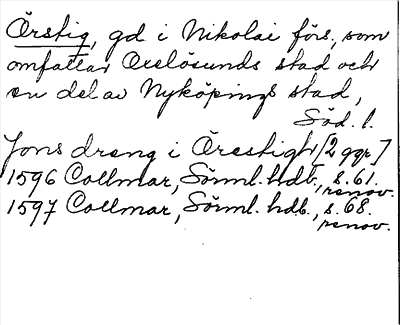 Örstig, gd i Nikolai förs, som
omfattar Oxelösunds stad och
en del av Nyköpings stad,
Söd. l.
Jons dreng i Örestigh [2 ggr.]
1596 Collmar, Sörml. hdb., s. 61.
renov.
1597 Collmar, Sörml. hdb., s. 68.
renov.